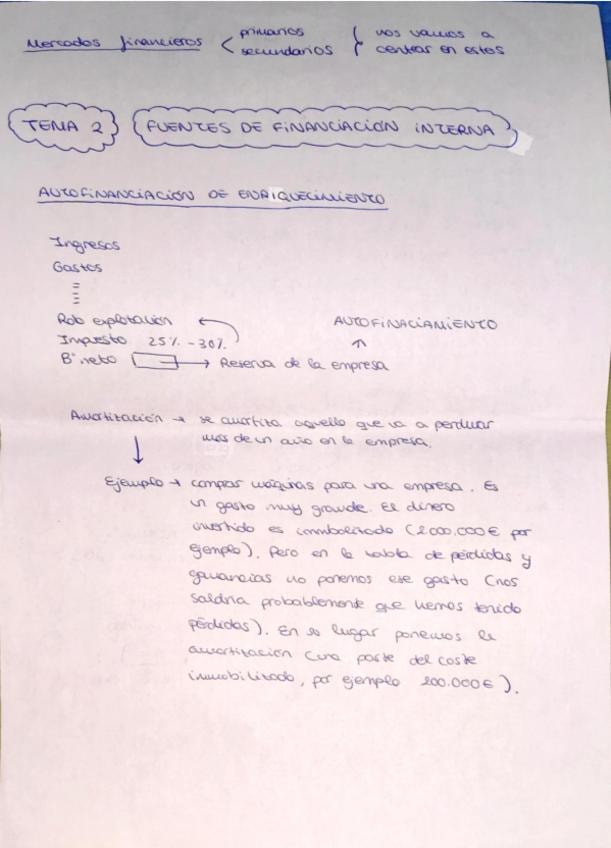 Mercados financieros < primarios } nos vamos a
secundarios centrar en estos
TEMA 2 FUENTES DE FINANCIACIÓN INTERNA
AUTOFINANCIACIÓN DE ENRIQUECIMIENTO
Ingresos
Gastos
Rdo explotación
Impuesto 25% - 30%
AUTOFINACIAMIENTO
Bº neto → Reserva de la empresa
Amortización → se amortiza aquello que va a perdurar
más de un año en la empresa.
Ejemplo → comprar máquinas para una empresa. Es
un gasto muy grande. El dinero
invertido es inmobilizado (2.000.000€ por
ejemplo). Pero en la tabla de pérdidas y
ganancias no ponemos ese gasto (nos
saldría probablemente que hemos tenido
pérdidas). En su lugar ponemos la
amortización (una parte del coste
inmobilizado, por ejemplo 200.000€).